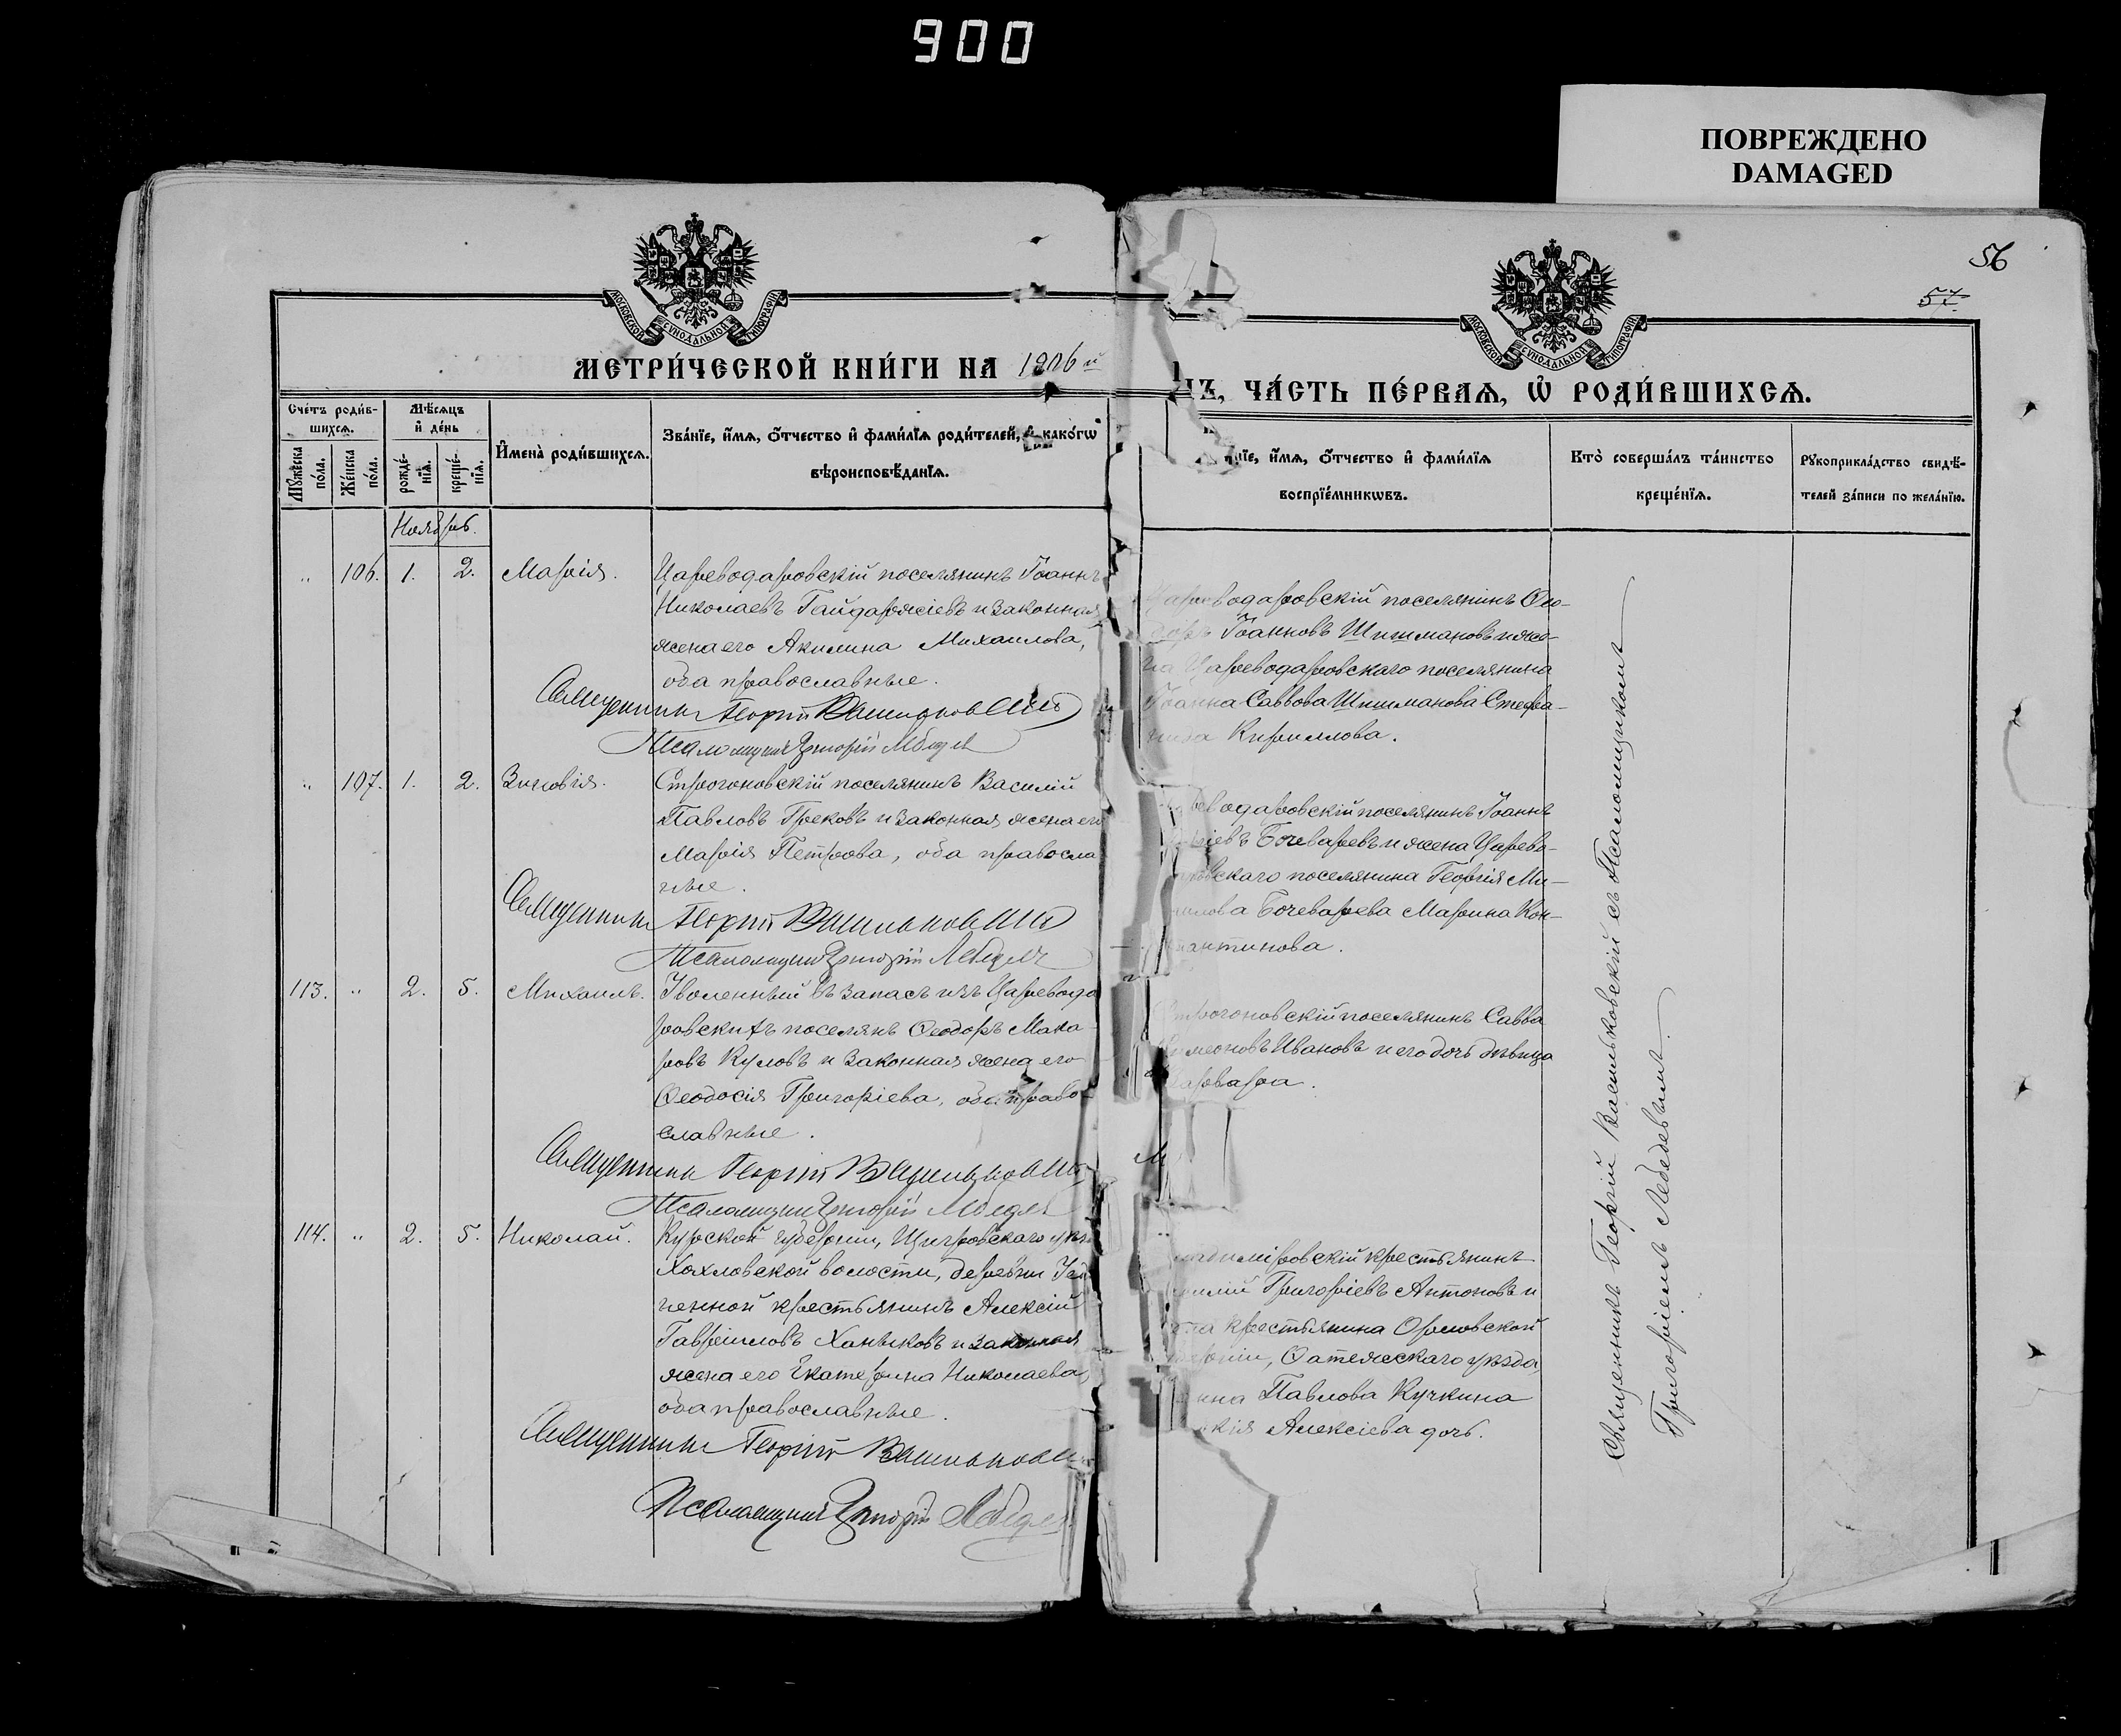 900
ПОВРЕЖДЕНО
DAMAGED
56
57.
МОСКОВСКОЙ СѴНОДАЛЬНОЙ ТИПОГРАФІИ
МОСКОВСКОЙ СѴНОДАЛЬНОЙ ТИПОГРАФІИ
МЕТРИ́ЧЕСКОЙ КНИ́ГИ НА 1906 й
ЧА́СТЬ ПЕ́РВАѦ, Ѡ҆ РОДИ́ВШИХСѦ.
Сче́тъ роди́в-
шихсѧ.
Мꙋ́жеска по́ла.
Же́нска по́ла.
Мѣ́сѧцъ
и҆ де́нь
рожде́-
нїѧ.
креще́-
нїѧ.
И҆мена̀ роди́вшихсѧ.
Зва́нїе, и҆́мѧ, ѻ҆́тчество и҆ фами́лїѧ роди́телей, и҆ како́гѡ
вѣроисповѣ́данїѧ.
и҆́мѧ, ѻ҆́тчество и҆ фами́лїѧ
воспрїе́мникѡвъ.
Кто̀ соверша́лъ та́инство
креще́нїѧ.
Рꙋкоприкла́дство свидѣ́-
телей за́писи по жела́нїю.
Ноябрь.
" 106. 1. 2. Марія.
Цареводаровскій поселянинъ Іоаннъ
Николаевъ Гайдаржіевъ и законная
жена его Акилина Михаилова,
оба православные.
Священникъ Георгій Васильковскій
Псаломщикъ Григорій Лебедев
Цареводаровскій поселянинъ Ѳео-
доръ Іоанновъ Шишмановъ и же-
на Цареводаровскаго поселянина
Іоанна Саввова Шишманова Стефа-
нида Кириллова.
" 107. 1. 2. Зиновія.
Строгоновскій поселянинъ Василій
Павловъ Грековъ и законная жена его
Марія Петрова, оба правосла
ные.
Священникъ Георгій Васильковскій
Псаломщикъ Григорій Лебедев
водаровскій поселянинъ Іоаннъ
Бочеваревъ и жена Царево-
ровскаго поселянина Георгія Ми-
Бочеварева Марина Кон-
стантинова.
113. " 2. 5. Михаилъ.
Уволенный въ запасъ изъ Царевода
ровскихъ поселянъ Ѳеодоръ Мака-
ровъ Куловъ и законная жена его
Ѳеодосія Григоріева, оба право-
славные.
Священникъ Георгій Васильковскій
Псаломщикъ Григорій Лебедев
Строгоновскій поселянинъ Савва
Симеоновъ Ивановъ и его дочь дѣвица
Варвара.
114. " 2. 5. Николай.
Курской губерніи, Щигровскаго уѣз
Хохловской волости, деревни
ненной крестьянинъ Алексій
Гавріиловъ Ханыковъ и законная
жена его Екатерина Николаева,
оба православные.
Священникъ Георгій Васильковскій
Псаломщикъ Григорій Лебедев
крестьянинъ
Григоріевъ Антоновъ и
крестьянина Орловской
губерніи, уѣзда,
Павлова Кучкина
Алексіева дочь.
Священникъ Георгій Васильковскій съ Псаломщикомъ
Григоріемъ Лебедевымъ.